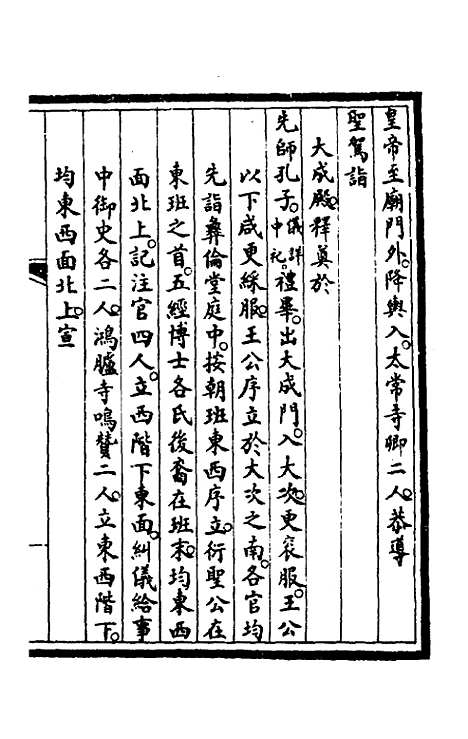 皇帝至廟門外。降輿入。太常寺卿二人。恭導
聖駕詣
大成殿。釋奠於
先師孔子。儀詳中祀。禮畢。出大成門。入大次。更袞服。王公
以下咸更綵服。王公序立於大次之南。各官均
先詣彝倫堂庭中。按朝班東西序立。衍聖公在
東班之首。五經博士各氏後裔在班末。均東西
面北上。記注官四人。立西階下東面。糾儀給事
中御史各二人。鴻臚寺鳴贊二人。立東西階下。
均東西面北上。宣